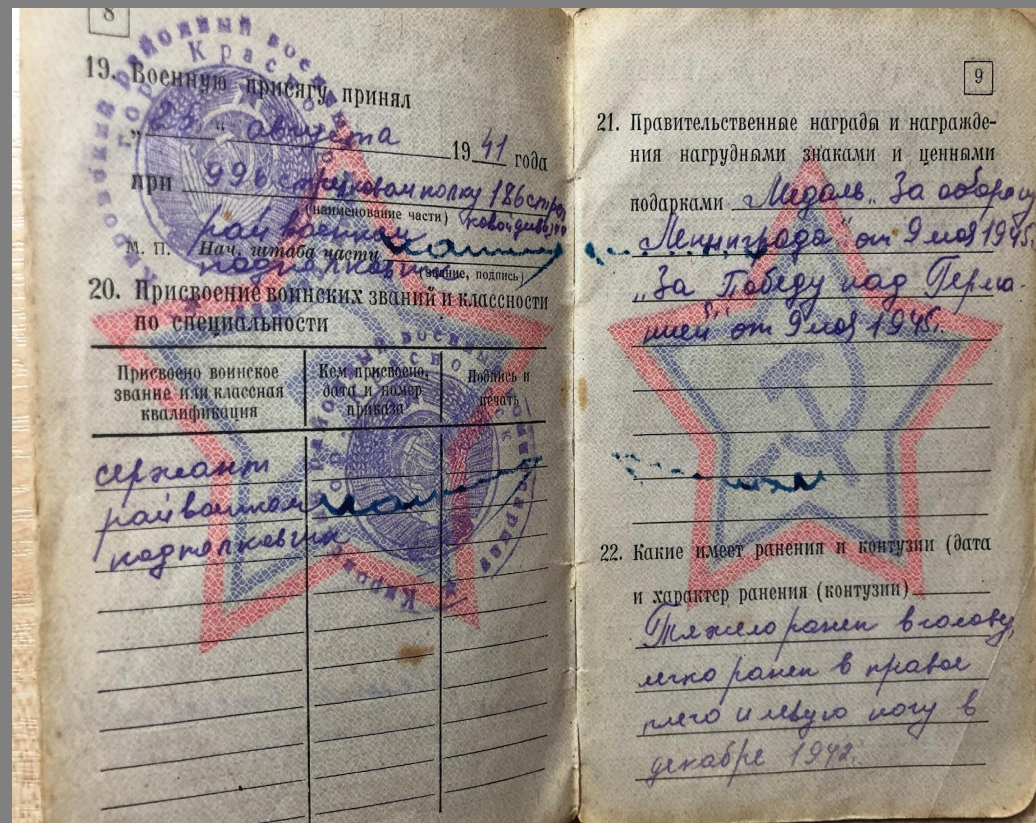 8
19. Военную присягу принял
„23“ августа 1941 года
при 996 стрелковом полку 186 стрел
(наименование части) ковой дивизии
райвоенком
М. П. Нач. штаба части
подполковник (звание, подпись)
20. Присвоение воинских званий и классности
по специальности
Присвоено воинское звание или классная квалификация
Кем присвоено, дата и номер приказа
Подпись и печать
сержант
райвоенком
подполковник
9
21. Правительственные награды и награжде-
ния нагрудными знаками и ценными
подарками Медаль „За оборону
Ленинграда“ от 9 мая 1945
„За Победу над Герма-
нией“ от 9 мая 1945г.
22. Какие имеет ранения и контузии (дата
и характер ранения (контузии)
Тяжело ранен в голову,
легко ранен в правое
плечо и левую ногу в
декабре 1942г.